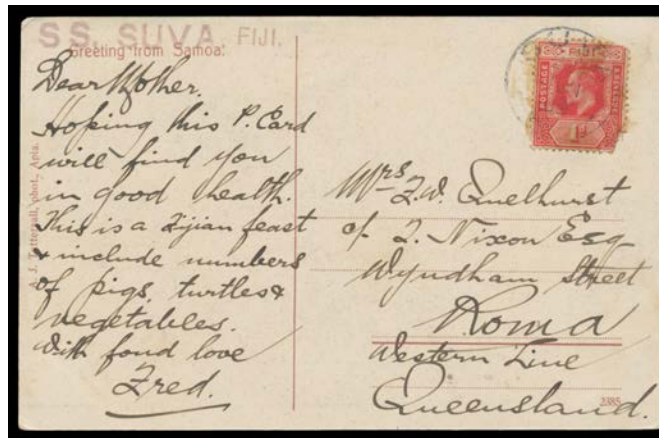 SS. SUVA FIJI.
Greeting from Samoa.
Dear Mother.
Hoping this P. Card
will find you
in good health.
This is a Fijian feast
& include numbers
of pigs, turtles &
vegetables.
With fond love
Fred.
A. J. Tattersall, phot., Apia.
POSTAGE
FIJI
1d
Mrs F. W. Quelhurst
c/. F. Nixon Esq
Wyndham Street
Roma
Western Line
Queensland.
2385